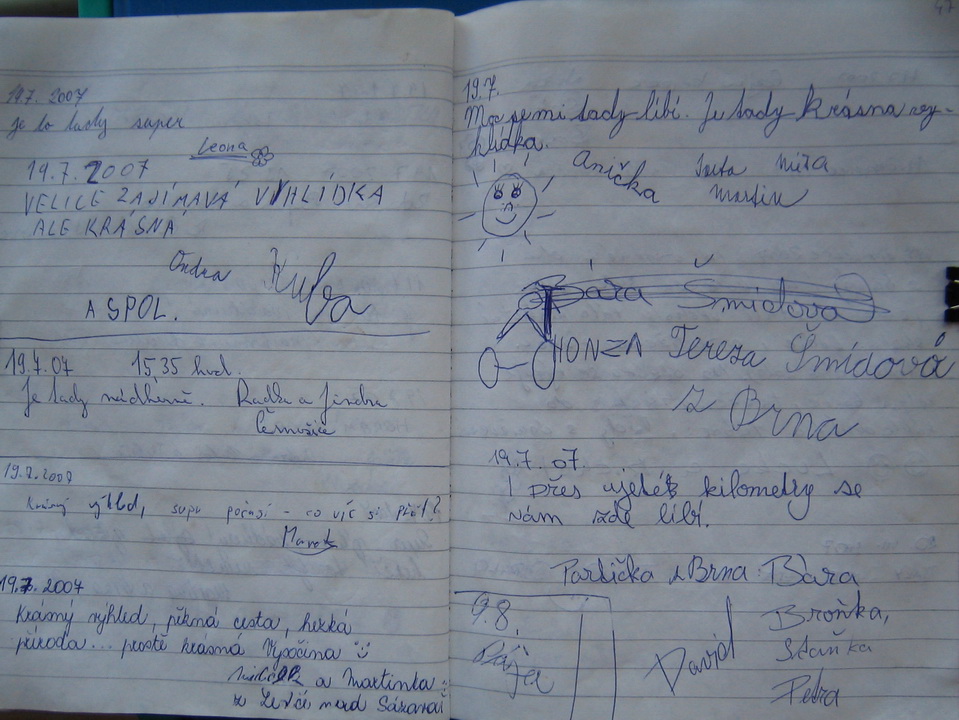 19.7. 2007
je to tady super
Leona
19.7. 2007
VELICE ZAJÍMAVÁ VYHLÍDKA
ALE KRÁSNÁ
Ondra Kuba
A SPOL.
19.7.07 15 35 hod.
Je tady nádherně. Radka a Jindra
Černošice
19.7.2007
Krásný výhled, supr počasí - co víc si přát?
Marek
19.7. 2007
Krásný výhled, pěkná cesta, hezká
příroda... prostě krásná Vysočina
a Martinka
ze Žďár nad Sázavou
47
19.7.
Moc se mi tady líbí. Je tady krásna vy-
hlídka.
Anička Iveta Míra
Martin
Bára Šmídová
HONZA Tereza Šmídová
Z Brna
19.7. 07.
I přes ujeté kilometry se
nám zde líbí.
Partička z Brna: Bára
Broňka,
Staňka
Petra
David
9.8.
Dája